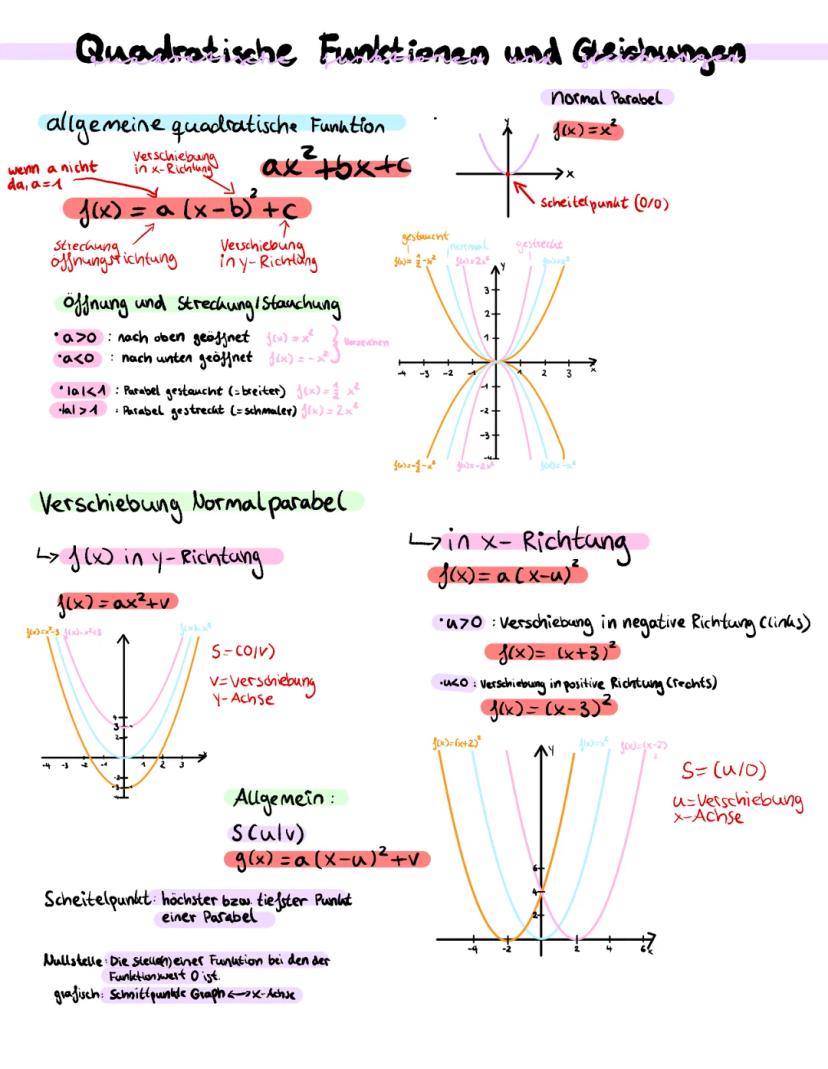 Quadratische Funktionen und Gleichungen
normal Parabel
f(x) = x²
y
x
Scheitelpunkt (0/0)
allgemeine quadratische Funktion
ax²+bx+c
wenn a nicht
da, a=1
Verschiebung
in x-Richtung
f(x) = a (x-b)² + c
Streckung
öffnungsrichtung
Verschiebung
in y-Richtung
Öffnung und Streckung/Stauchung
• a>0 : nach oben geöffnet f(x) = x²
• a<0 : nach unten geöffnet f(x) = -x²
Vorzeichen
• |a|<1 : Parabel gestaucht (=breiter) f(x) = ½ x²
• |a|>1 : Parabel gestreckt (=schmaler) f(x) = 2x²
gestaucht normal gestreckt
f(x)= ½-x² f(x)=2x² f(x)=x²
y
3
2
1
-4 -3 -2 -1 1 2 3 x
-1
-2
-3
-4
f(x)=-½-x² f(x)=-2x² f(x)=-x²
Verschiebung Normalparabel
↳ f(x) in y-Richtung
f(x) = ax²+v
f(x)=x²-3 f(x)=x²+3 f(x)=x²
S=(0/v)
v=Verschiebung
y-Achse
4
3
2
-4 -3 -2 -1 1 2 3 x
-2
-3
↳ in x-Richtung
f(x) = a (x-u)²
• u>0 : Verschiebung in negative Richtung (links)
f(x) = (x+3)²
• u<0 : Verschiebung in positive Richtung (rechts)
f(x) = (x-3)²
f(x)=(x+2)² y f(x)=x² f(x)=(x-2)²
S=(u/0)
u=Verschiebung
x-Achse
6
4
2
-4 -2 2 4 6 x
Allgemein:
S(u|v)
g(x) = a (x-u)² + v
Scheitelpunkt: höchster bzw. tiefster Punkt
einer Parabel
Nullstelle: Die Stelle(n) einer Funktion bei den der
Funktionswert 0 ist.
grafisch: Schnittpunkte Graph ↔ x-Achse